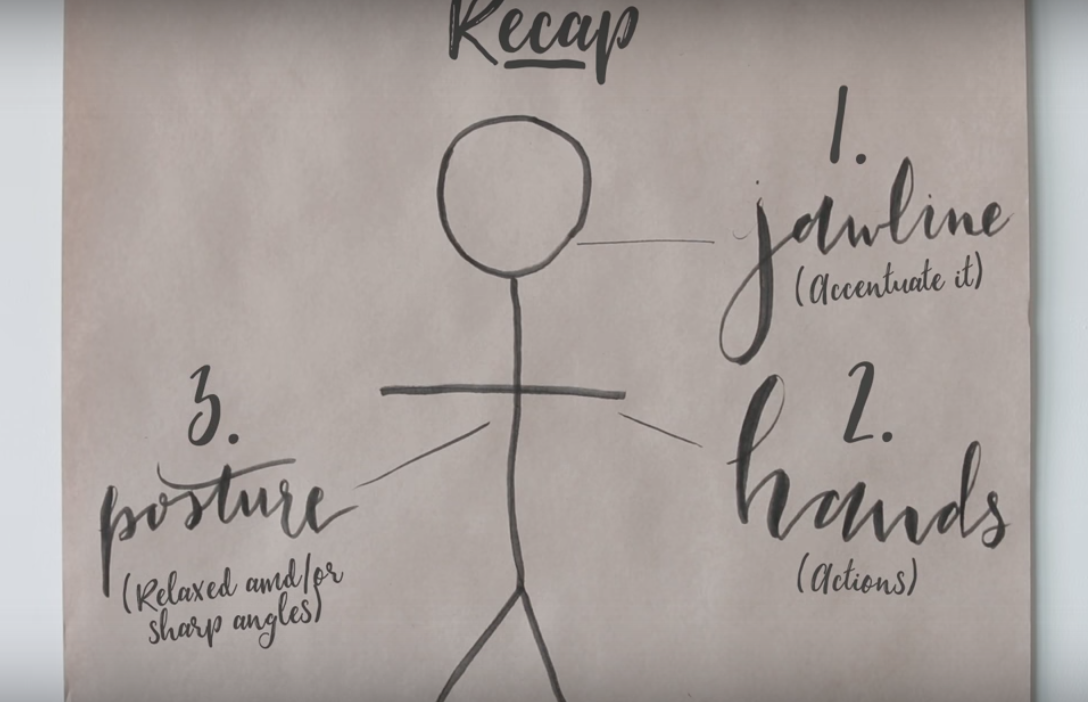 Recap
1.
jawline
(Accentuate it)
2.
hands
(Actions)
3.
posture
(Relaxed amd/or
sharp angles)